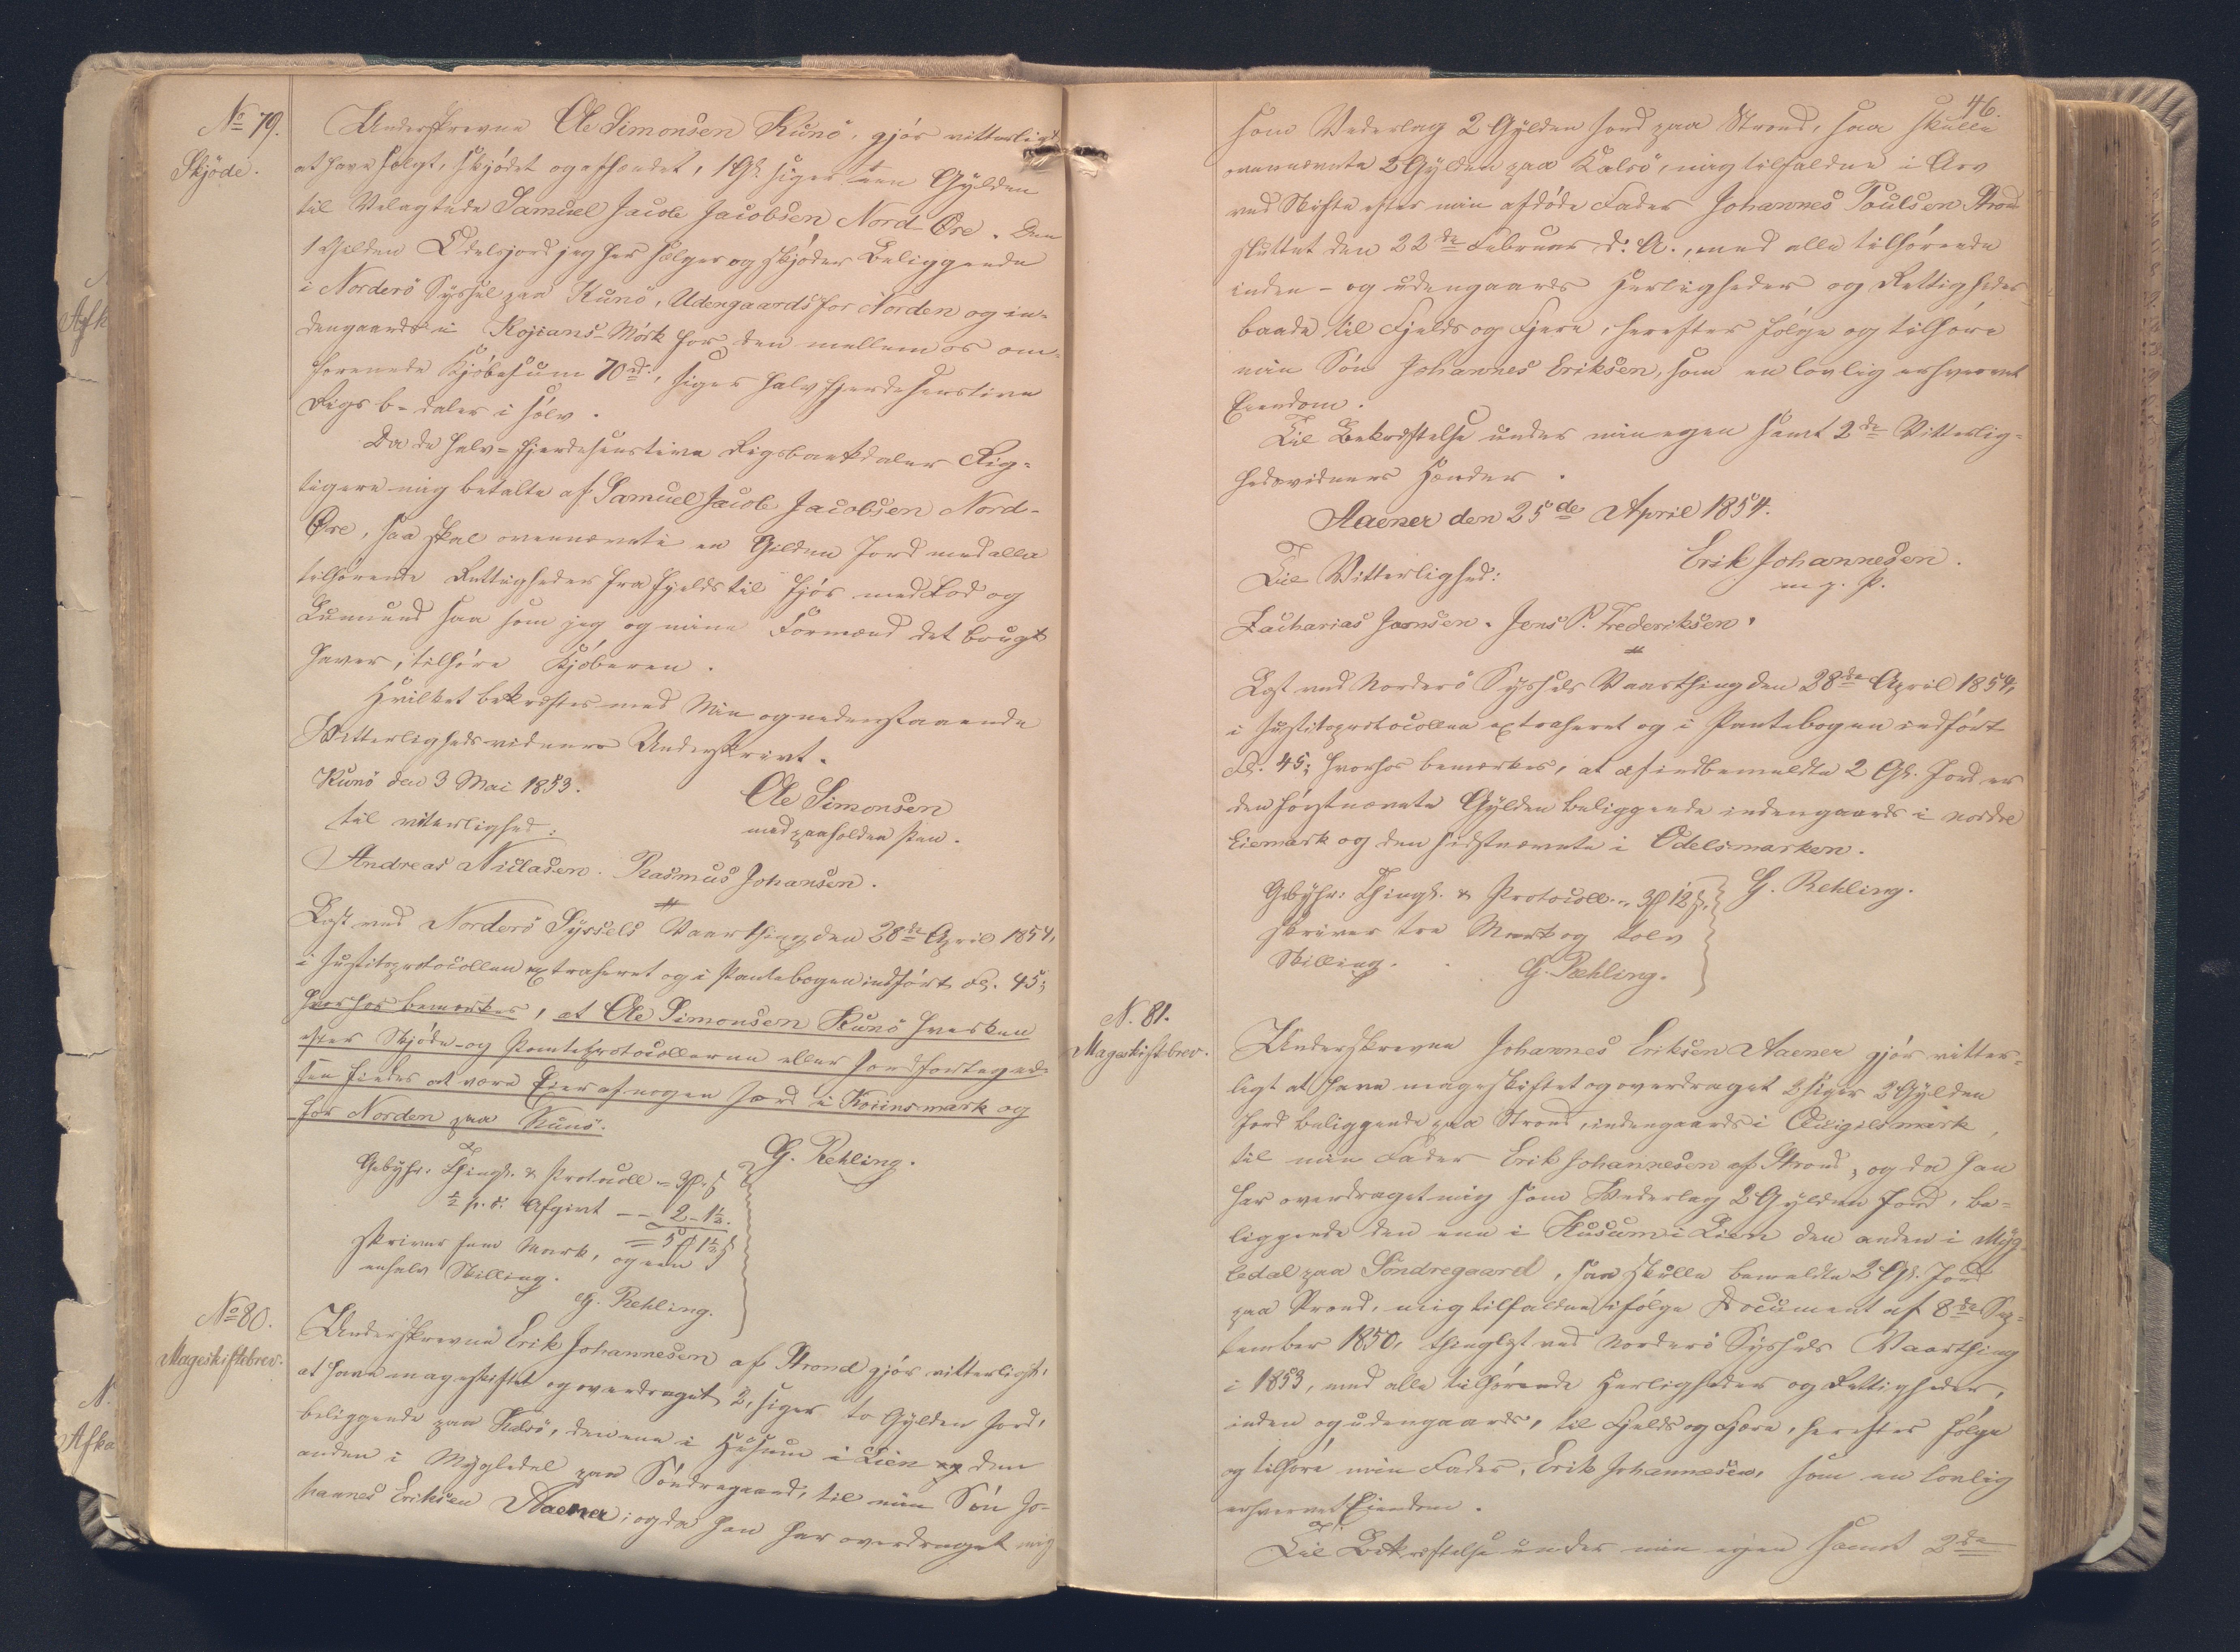 No 79.
Skjöde.
Underskrevne Ole Simonsen Kunö, gjör vitterligt
at have solgt, skjödet og afhændet, 1 Gl. siger een Gylden
til Velagtede Samuel Jacob Jacobsen Nord-Öre. Den
1 Gylden Odelsjord jeg her sælger og skjöder beliggende
i Norderö Syssel paa Kunö, Udengaards for Norden og in-
dengaards i Kojians-Mörk for den mellem os om-
forenede Kjöbesum 70 rd., siger halvfjerdesenstive
Rigsb-daler i sölv.
Da de halv-fjerdesenstive Rigsbankdaler Rig-
tigere mig betalte af Samuel Jacob Jacobsen Nord-
Öre, saa skal ovennævnte en Gylden Jord med alle
tilhörende Rettigheder fra Fjelds til Fjör med Lod og
Lunnend saa som jeg og mine Formænd det brugt
haver, tilhöre Kjöberen.
Hvilket bekræftes med Min og nederstaaende
Vitterlighedsvidners Underskrivt.
Kunö den 3 Mai 1853.
Ole Simonsen
med paaholden Pen.
til viterlighed:
Andreas Niclasen. Rasmus Johansen.
Læst ved Norderö Syssels Vaarthing den 28de April 1854,
i Justitsprotocollen extraheret og i Pantebogen indfört Fol. 45;
hvorhos bemærkes, at Ole Simonsen Kunö hverken
efter Skjöde- og Panteprotocollerne eller Jordfortegnel-
sen findes at være Eier af nogen Jord i Koiinsmark og
for Norden paa Kunö.
G. Rehling.
Gebyhr: Thingl. & Protocoll = 3 ß
½ p. C. Afgivt -- 2 - 1½.
= 5 1½ ß
skriver fem Mark, og een
enhalv Skilling.
G. Rehling.
No 80.
Mageskiftebrev.
Underskrevne Erik Johannesen af Strond gjör vitterligt,
at have mageskiftet og overdraget 2, siger to Gylden Jord,
beliggende paa Kalsö, den ene i Húsum i Lien og den
anden i Mygledal paa Söndregaard, til min Sön Jo-
hannes Eriksen Aaener; og da han har overdraget mig
46.
som Vederlag 2 Gylden Jord paa Strond, saa skulle
ovennævnte 2 Gylden paa Kalsö, mig tilfaldne i Arv
ved Skifte efter min afdöde Fader Johannes Poulsen Strond
sluttet den 22de Februar d: A., med alle tilhörende
inden- og udengaards Herligheder og Rettigheder
baade til Fjelds og Fjere, herefter fölge og tilhöre
min Sön Johannes Eriksen, som en lovlig erhvervet
Eiendom.
Til Bekræftelse under min egen samt 2de Vitterlig-
hedsvidners Hænder.
Aaener den 25de April 1854.
Erik Johannesen.
m. p. P.
Til Vitterlighed:
Zacharias Joensen. Jens P. Frederiksen.
Læst ved Norderö Syssels Vaarthing den 28de April 1854,
i Justitsprotocollen extraheret og i Pantebogen indfört
Fol. 45; hvorhos bemærkes, at af indbemeldte 2 Gl. Jord er
den förstnævnte Gylden beliggende indengaards i nordre
Liemark og den sidstnævnte i Odelsmarken.
G. Rehling.
Gebyhr: Thingl. & Protocoll.. 3 12 ß.
skriver tre Mark og tolv
Skilling.
G. Rehling.
N. 81.
Mageskiftebrev.
Underskrevne Johannes Eriksen Aaener gjör vitter-
ligt at have mageskiftet og overdraget 2 siger 2 Gylden
Jord beliggende paa Strond, indengaards i Quigilsmark,
til min Fader Erik Johannesen af Strond, og da han
har overdraget mig som Vederlag 2 Gylden Jord, be-
liggende den ene i Husum i Lien den anden i Myg-
ledal paa Söndregaard, saa skulle bemeldte 2 Gl. Jord
paa Strond, mig tilfaldne ifölge Document af 8de Sep-
tember 1850, thinglyst ved Norderö Syssels Vaarthing
i 1853, med alle tilhörende Herligheder og Rettigheder,
inden og udengaards, til Fjelds og Fjære, herefter fölge
og tilhöre min Fader, Erik Johannesen, som en lovlig
erhvervet Eiendom.
Til Bekræftelse under min egen samt 2de